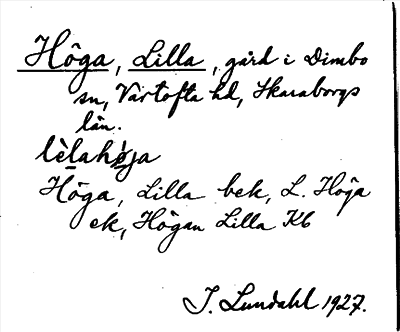 Höga, Lilla, gård i Dimbo
sn, Vartofta hd, Skaraborgs
län.
lèlahøja
Höga, Lilla bek, L. Höga
ek, Högan Lilla Kb
J. Lundahl 1927.